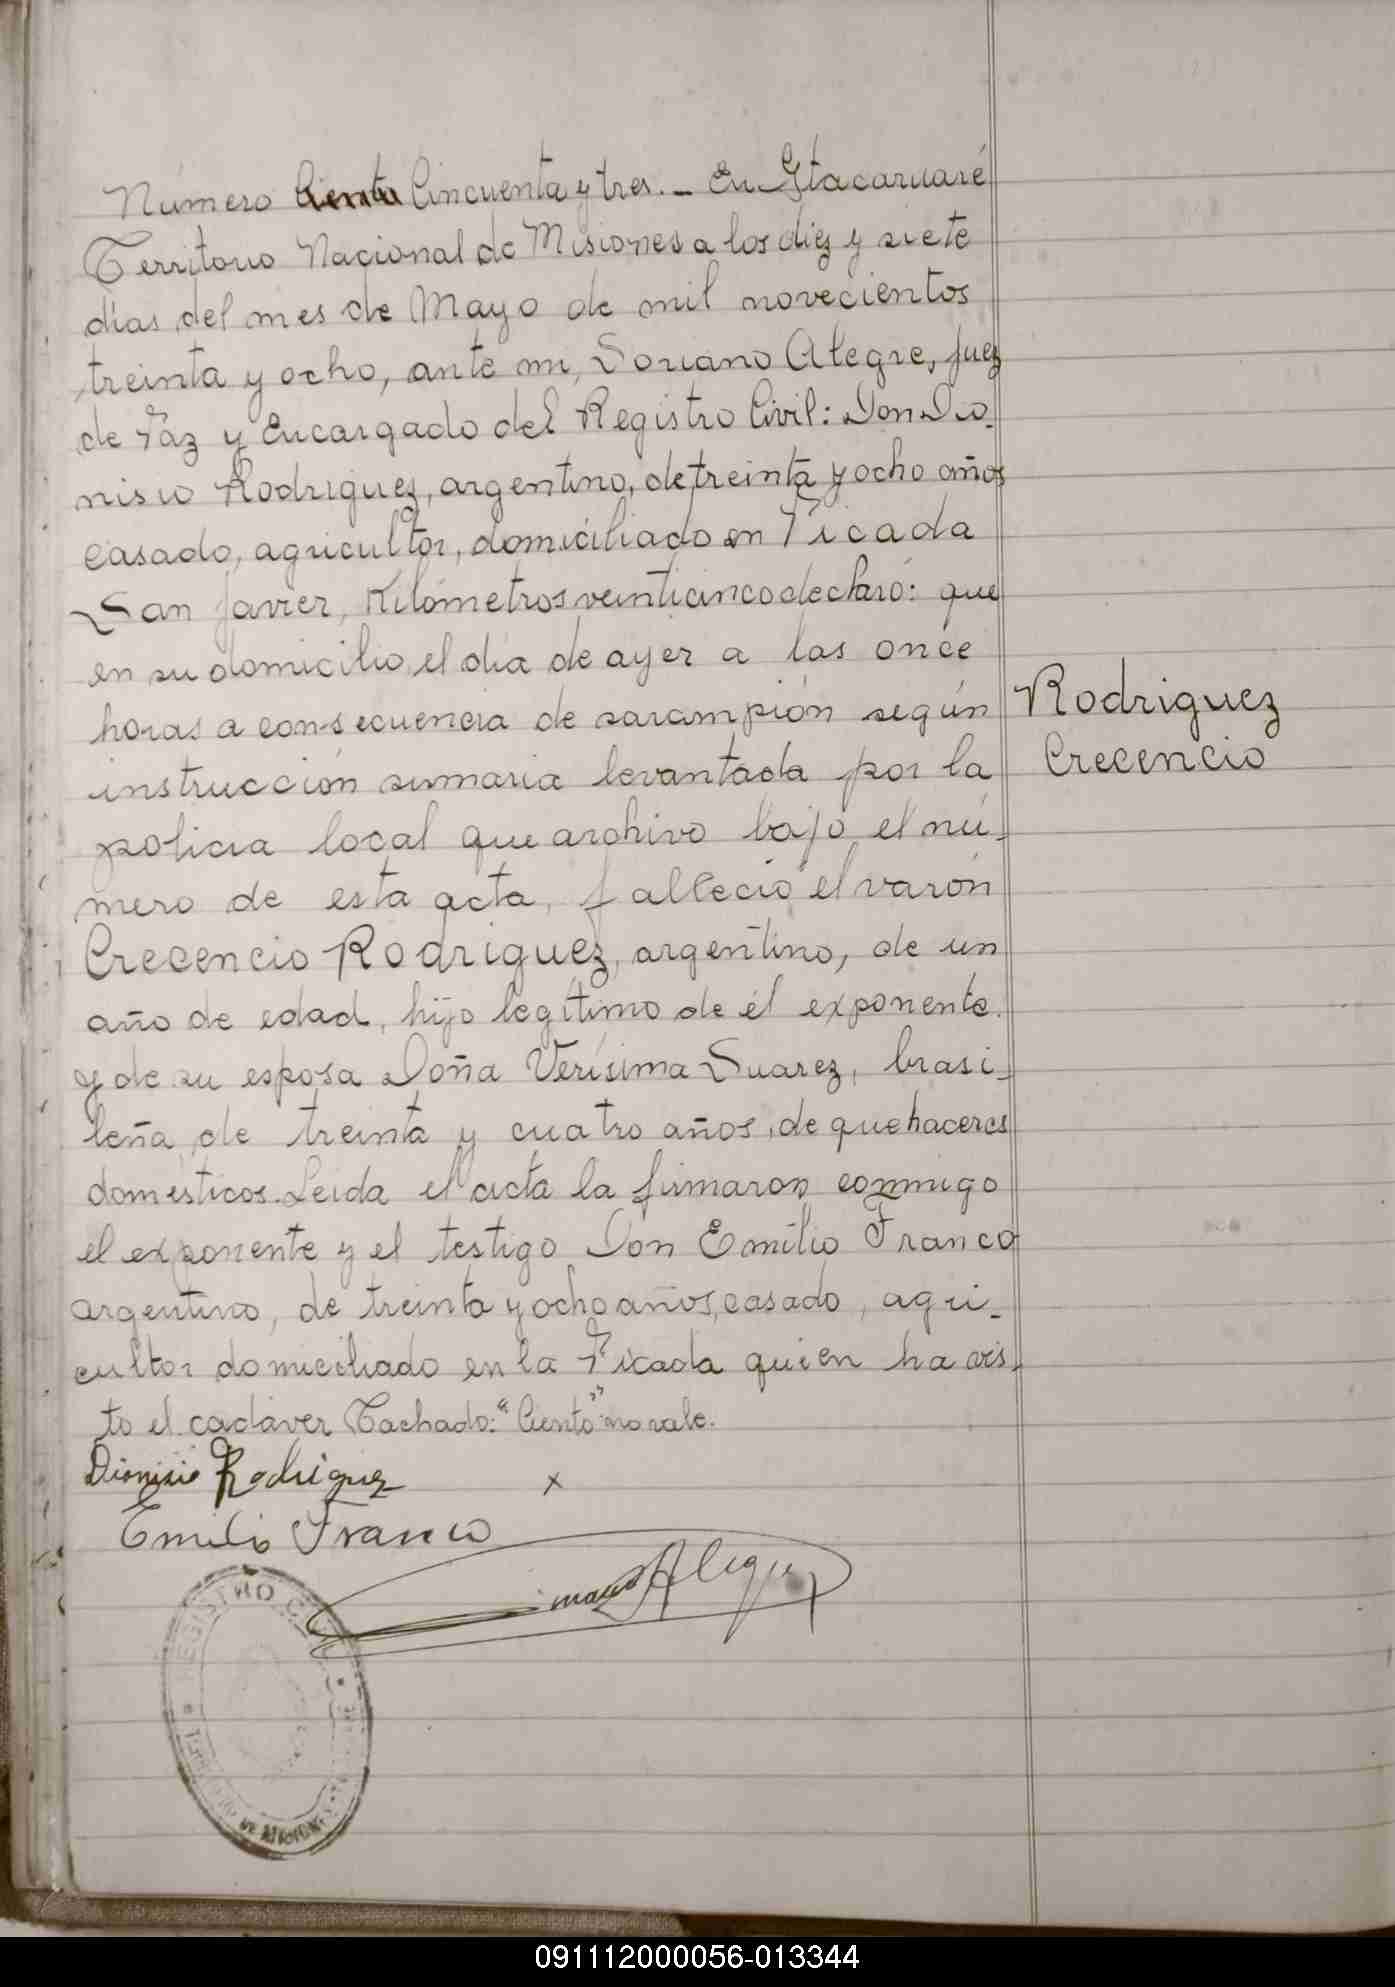 Número Ciento Cincuenta y tres. _ En Itacaruaré
Territorio Nacional de Misiones a los diez y siete
días del mes de Mayo de mil novecientos
treinta y ocho, ante mi, Soriano Alegre, Juez
de Paz y Encargado del Registro Civil: Don Dio_
nisio Rodriguez, argentino, de treinta y ocho años
casado, agricultor, domiciliado en Picada
San Javier, Kilómetros veinticinco declaró: que
en su domicilio, el día de ayer a las once
horas a consecuencia de sarampión según
instrucción sumaria levantada por la
policía local que archivo bajo el nú_
mero de esta acta, falleció el varón
Crecencio Rodriguez, argentino, de un
año de edad, hijo legítimo de él exponente
y de su esposa Doña Verísima Suarez, brasi_
leña, de treinta y cuatro años, de quehaceres
domésticos. Leida el acta la firmaron conmigo
el exponente y el testigo Don Emilio Franco
argentino, de treinta y ocho años, casado, agri_
cultor domiciliado en la Picada quien ha vis_
to el cadáver Tachado: "Ciento" no vale.
Rodriguez
Crecencio
Dionisio Rodriguez x
Emilio Franco
Alegre
REGISTRO CIVIL
DE MISIONES
091112000056-013344